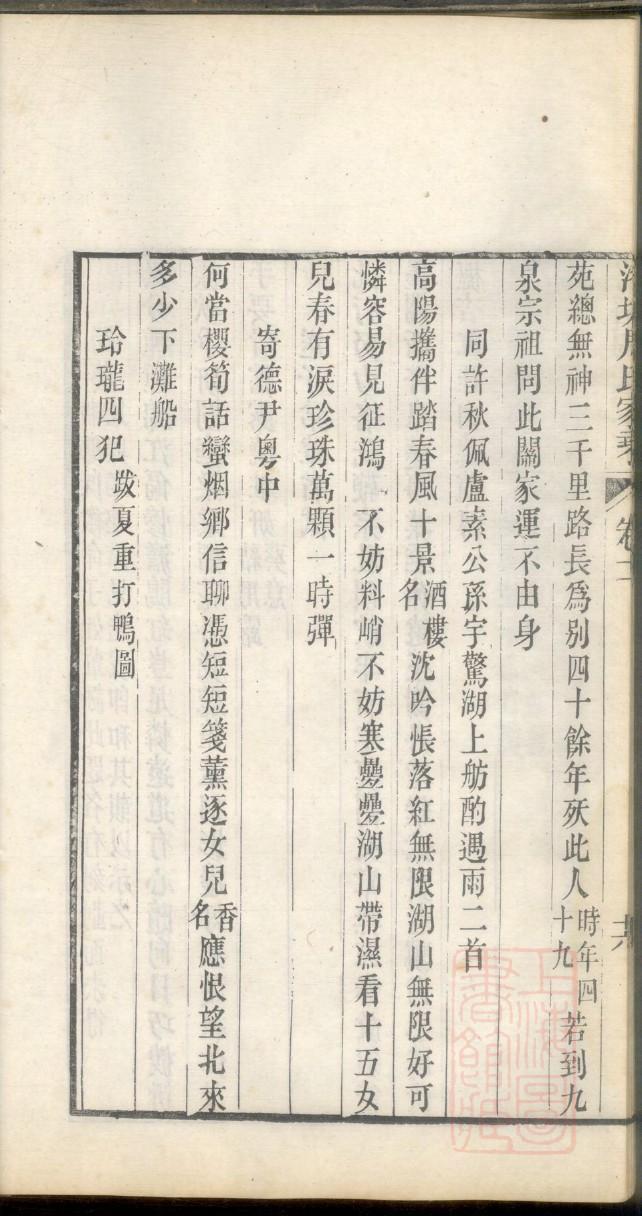 周氏家
卷二
苑總無神三千里路長為別四十餘年殀此人時年四十九若到九
泉宗祖問此關家運不由身
同許秋佩盧素公孫宇驚湖上舫酌遇雨二首
高陽攜伴踏春風十景酒樓名沈吟悵落紅無限湖山無限好可
憐容易見征鴻　不妨料峭不妨寒疊疊湖山帶濕看十五女
兒春有淚珍珠萬顆一時彈
寄德尹粵中
何當櫻筍話蠻烟鄉信聊憑短短箋薰逐女兒香名應恨望北來
多少下灘船
玲瓏四犯 跋夏重打鴨圖
上海圖書館藏